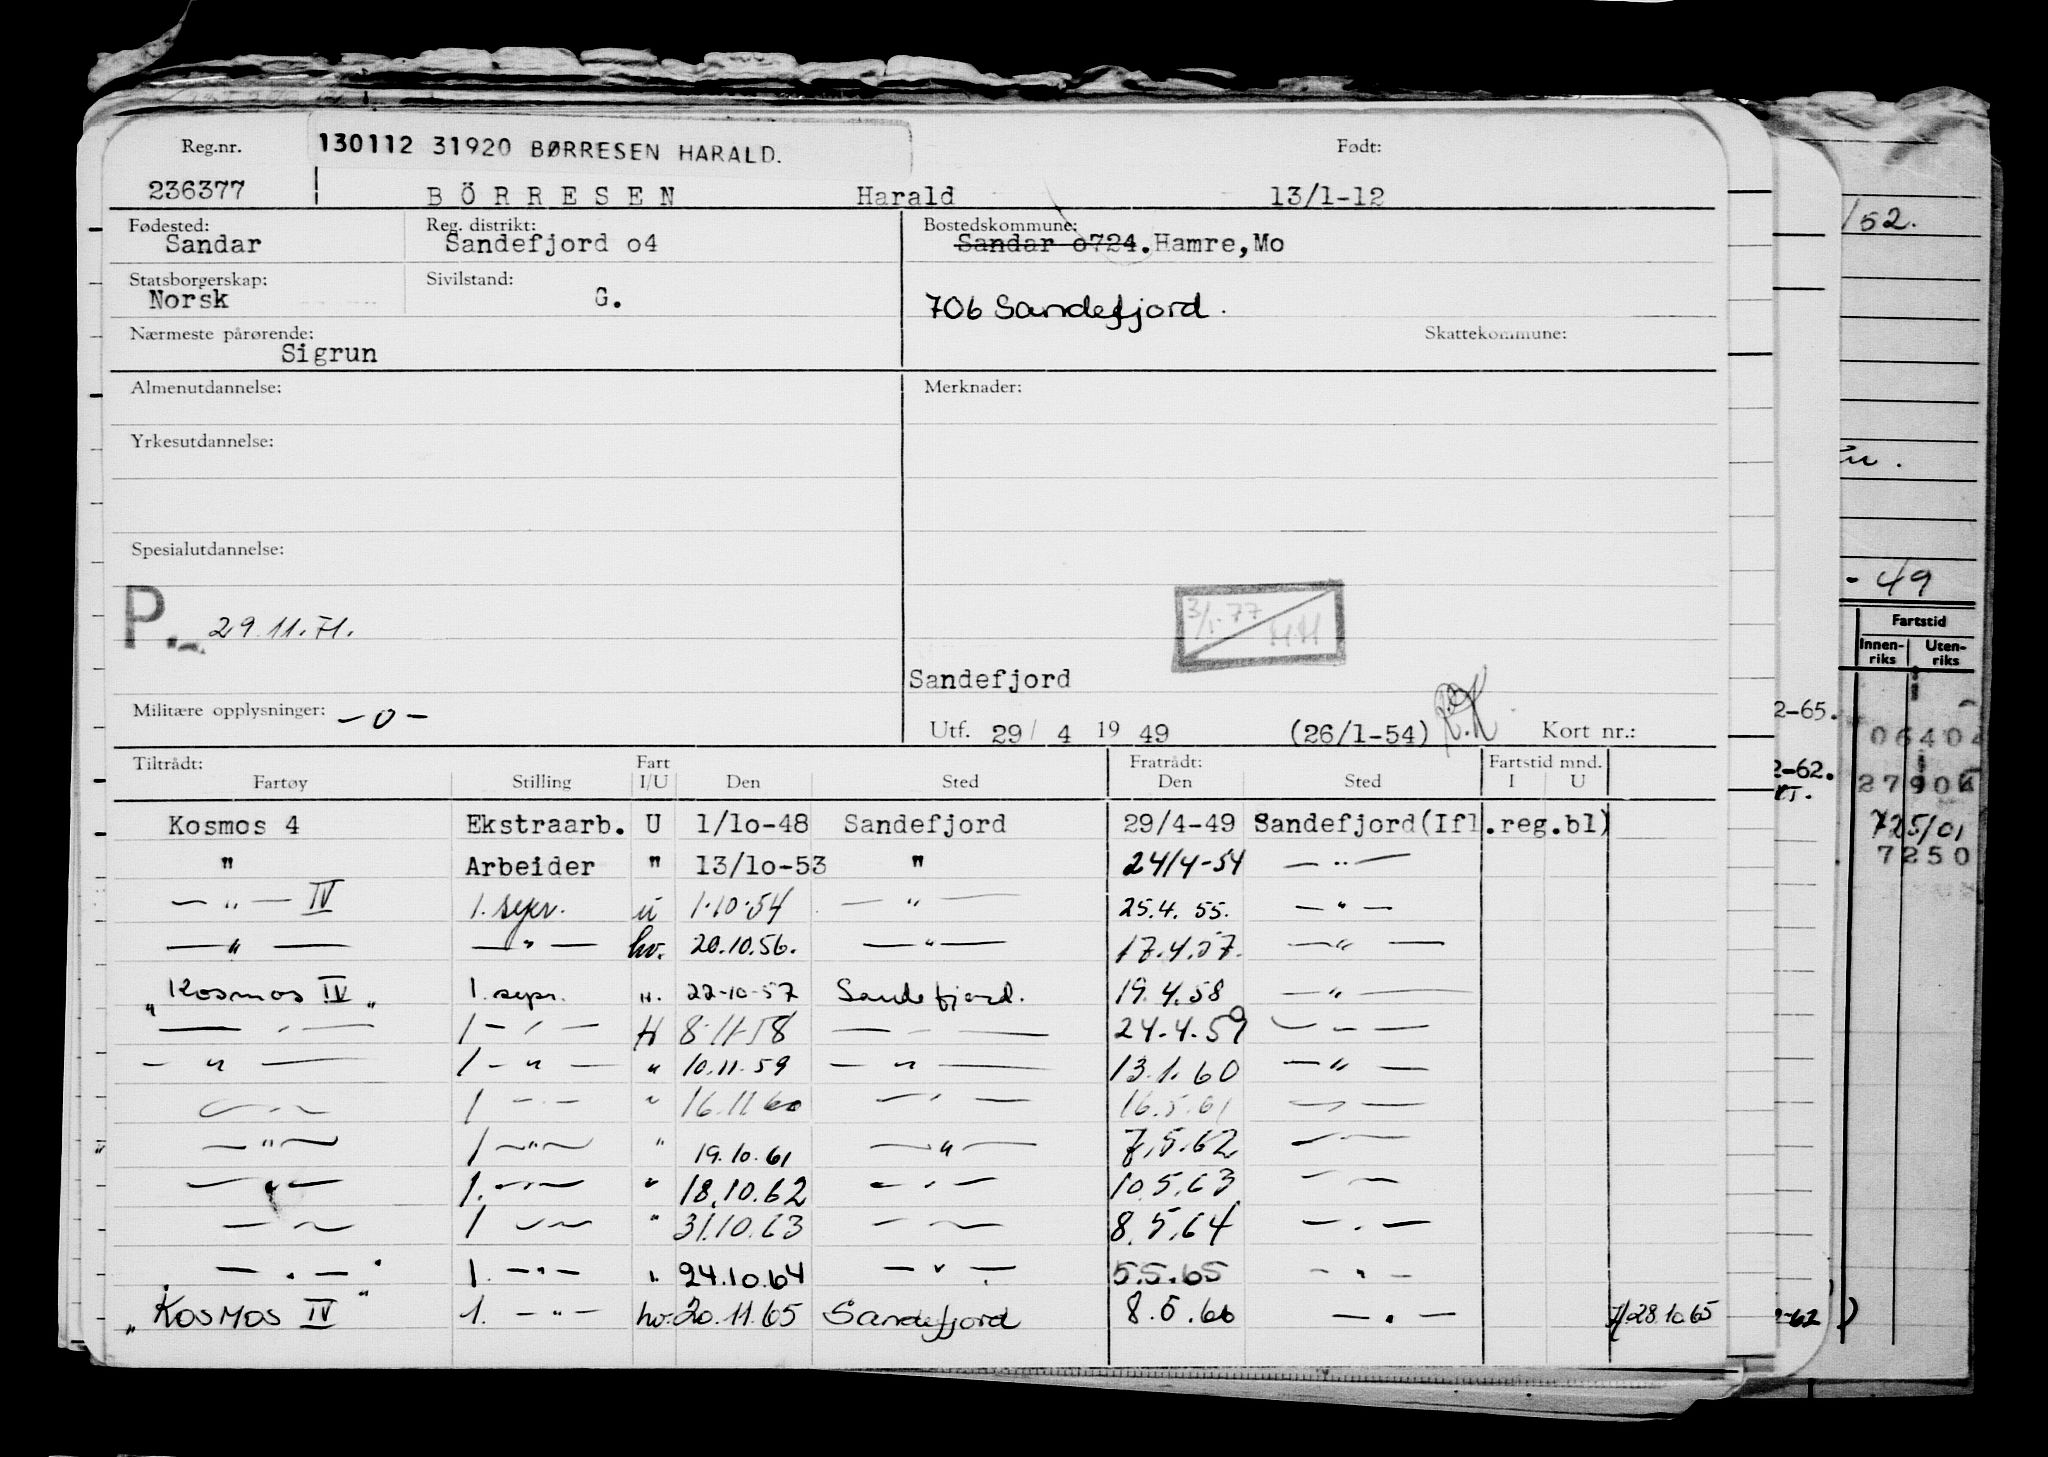 Reg.nr. 130112 31920 BØRRESEN HARALD. Født:
236377 BÖRRESEN Harald 13/1-12
Fødested: Reg. distrikt: Bostedskommune:
Sandar Sandefjord o4 Sandar o724. Hamre, Mo
Statsborgerskap: Sivilstand:
Norsk G. 706 Sandefjord.
Nærmeste pårørende: Skattekommune:
Sigrun
Almenutdannelse: Merknader:
Yrkesutdannelse:
Spesialutdannelse:
P. 29.11.71. 3/1.77 HH
Sandefjord
Militære opplysninger: -0- Utf. 29/ 4 19 49 (26/1-54) Kort nr.:
Tiltrådt: Fart Fratrådt: Fartstid mnd.
Fartøy Stilling I/U Den Sted Den Sted I U
Kosmos 4 Ekstraarb. U 1/1o-48 Sandefjord 29/4-49 Sandefjord(Ifl.reg.bl)
" Arbeider " 13/1o-53 " 24/4-54 — " —
— " — IV 1. sepr. u 1.10.54 — " — 25.4.55. — " —
— " — — " — hv. 20.10.56. — " — 17.4.57. — " —
"Kosmos IV" 1. sepr. ". 22-10-57 Sandefjord. 19.4.58 — " —
— " — 1 — " — H 8.11.58 — " — 24.4.59 — " —
— " — 1 — " — " 10.11.59 — " — 13.1.60 — " —
— " — 1 — " — " 16.11.60 — " — 16.5.61 — " —
— " — 1 — " — " 19.10.61 — " — 7.5.62 — " —
— " — 1. — " — " 18.10.62 — " — 10.5.63 — " —
— " — 1 — " — " 31.10.63 — " — 8.5.64 — " —
— " — 1. — " — " 24.10.64 — " — 5.5.65 — " —
"Kosmos IV" 1. — " — hv. 20.11.65 Sandefjord 8.5.66 — " — 28.10.65
/52.
- 49
Fartstid
Innen-riks Uten-riks
2-65.
2-62.
725/01
7250
-62)